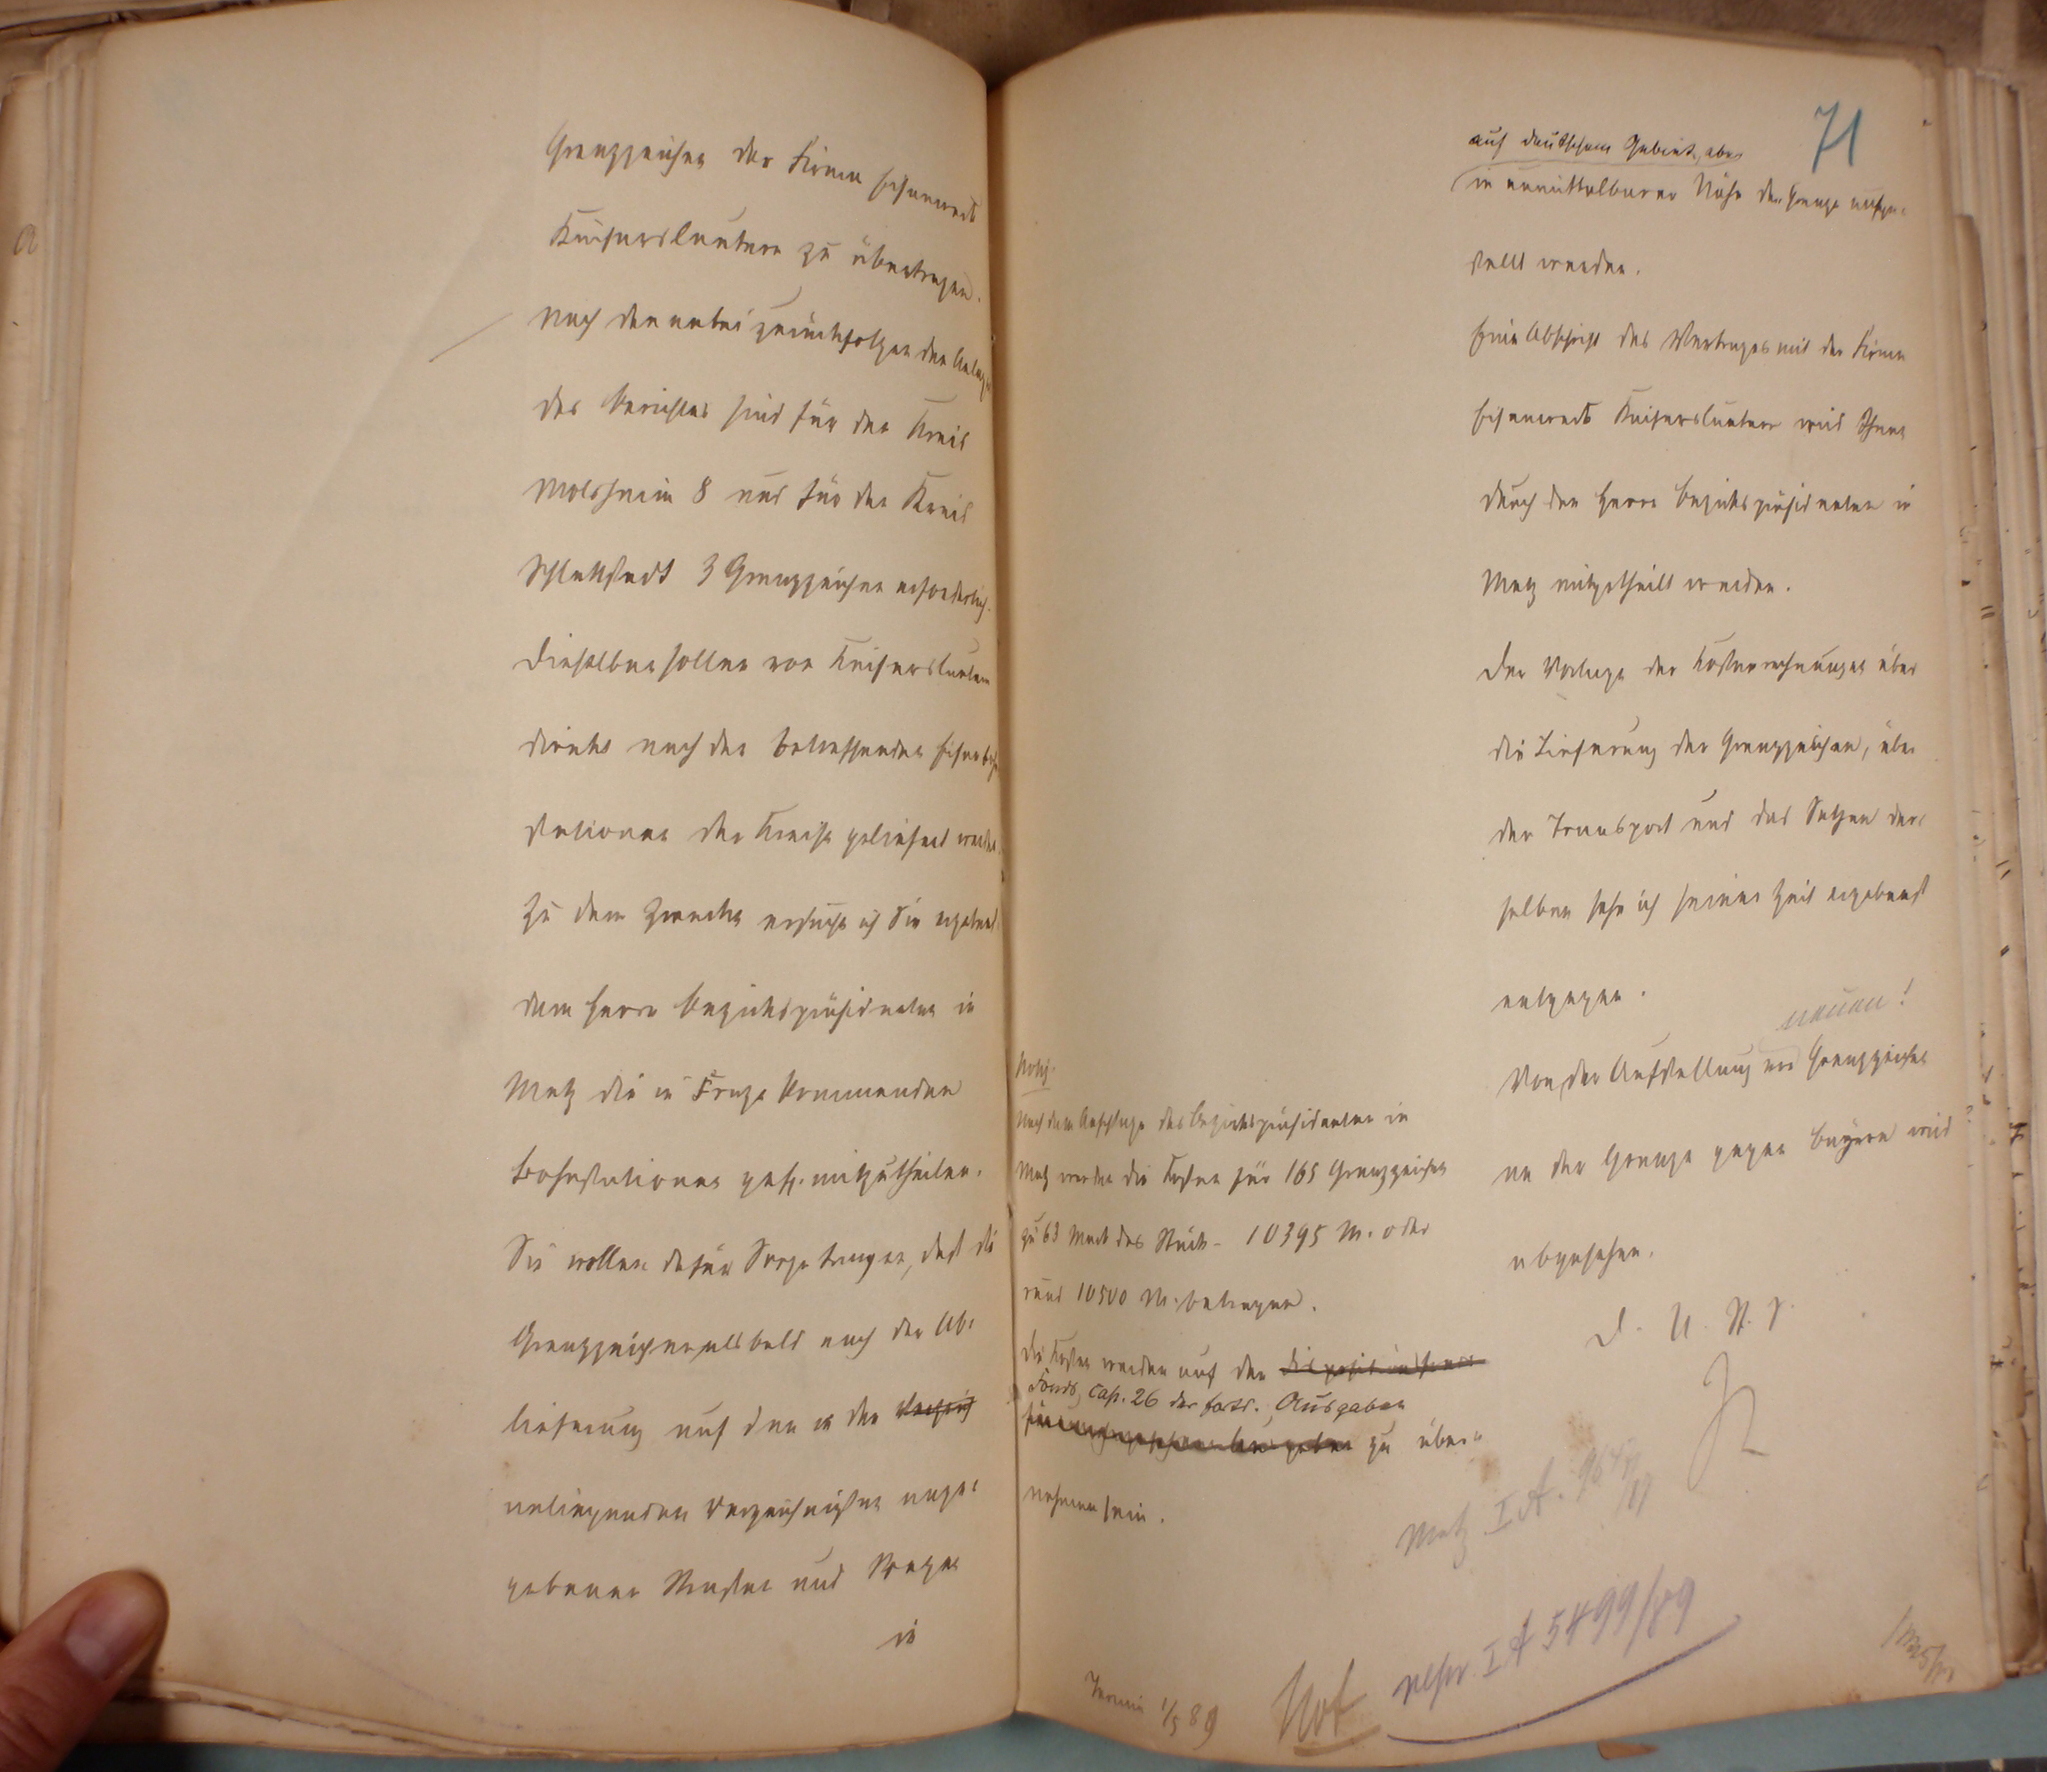 Grenzzeichen der Firma Eisenwerk
Kaiserslautern zu übertragen.
Nach den anbei zurückfolgenden Anlagen
des Berichtes sind für den Kreis
Molsheim 8 und für den Kreis
Schlettstadt 3 Grenzzeichen erforderlich.
Dieselben sollen von Kaiserslautern
direkt nach den betreffenden Eisenbahn
stationen der Kreise geliefert werden.
Zu dem Zwecke ersuche ich Sie ergebenst,
dem Herrn Bezirkspräsidenten in
Metz die in Frage kommenden
Bahnstationen gefl. mitzutheilen.
Sie wollen dafür Sorge tragen, daß die
Grenzzeichen alsbald nach der Ab-
lieferung auf den in den
anliegenden Verzeichnißen ange-
gebenen Straßen und Wegen
in
71
auf deutschem Gebiet, aber
in unmittelbarer Nähe der Grenze aufge-
stellt werden.
Eine Abschrift des Vertrages mit der Firma
Eisenwerk Kaiserslautern wird Ihnen
durch den Herrn Bezirkspräsidenten in
Metz mitgetheilt werden.
Der Vorlage der Kostenrechnungen über
die Lieferung der Grenzzeichen, über
den Transport und das Setzen der-
selben sehe ich seiner Zeit ergebenst
entgegen.
neuen!
Von der Aufstellung von Grenzzeichen
an der Grenze gegen Bayern wird
abgesehen.
D. U. St. S.
Notiz.
Nach dem Anschlage des Bezirkspräsidenten in
Metz werden die Kosten für 165 Grenzzeichen
zu 63 Mark das Stück - 10395 M. oder
rund 10500 M. betragen.
Die Kosten werden auf den Dispositionsfonds
Fonds, Cap. 26 der fortd. Ausgaben
zu über-
nehmen sein.
Metz I A.
I A 5499/89
Termin 1/5 89
Not